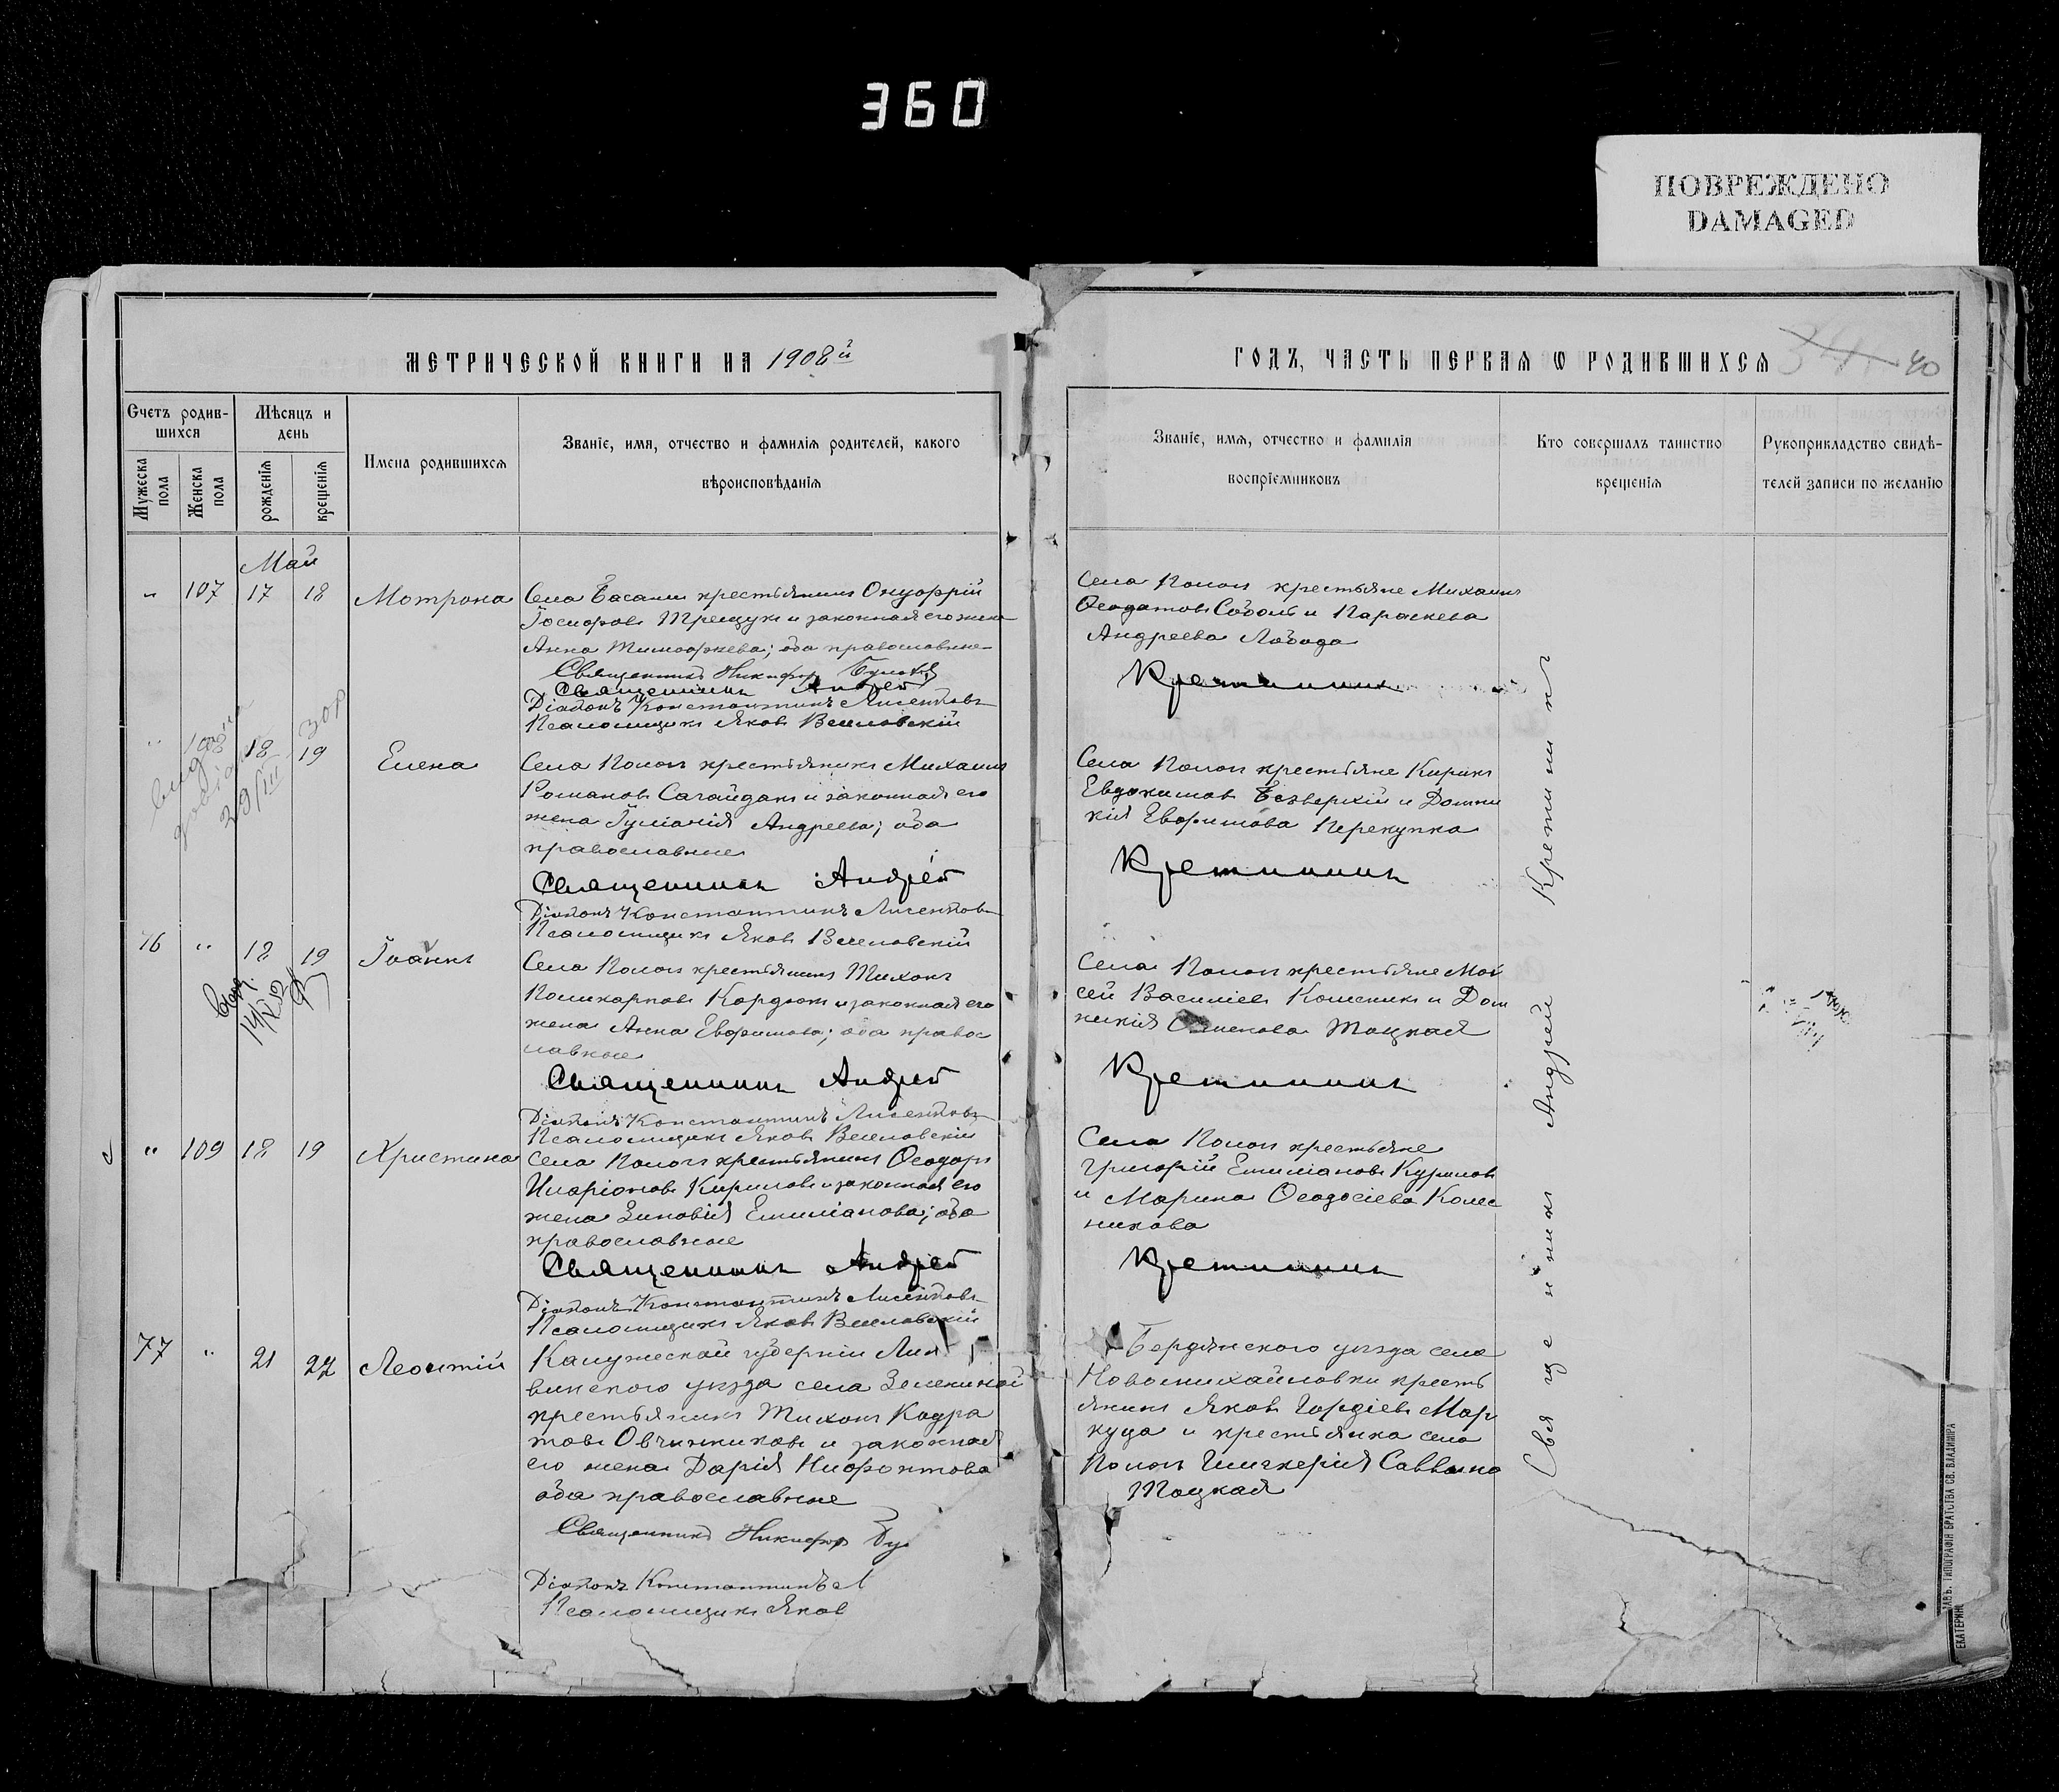 360
ПОВРЕЖДЕНО
DAMAGED
МЕТРИЧЕСКОЙ КНИГИ НА 1908й
ГОДЪ, ЧАСТЬ ПЕРВАЯ Ѡ РОДИВШИХСЯ
40
Счетъ родив-
шихся
Мѣсяцъ и
день
Мужеска
пола
Женска
пола
рожденія
крещенія
Имена родившихся
Званіе, имя, отчество и фамилія родителей, какого
вѣроисповѣданія
Званіе, имя, отчество и фамилія
воспріемниковъ
Кто совершалъ таинство
крещенія
Рукоприкладство свидѣ-
телей записи по желанію
Май
" 107 17 18 Мотрона
Села Басани крестьянинъ Онуфрій
Іосифовъ Трещукъ и законная его жена
Анна Тимофеева; оба православные
Священникъ Никифоръ
Священникъ Андрей
Діаконъ Константинъ Лисенковъ
Псаломщикъ Яковъ Веселовскій
Села Пологъ крестьяне Михаилъ
Ѳеодотовъ Соболь и Параскева
Андреева Лобода
Кретининъ
" 108 18 19 Елена
Села Пологъ крестьянинъ Михаилъ
Романовъ Сагайдакъ и законная его
жена Іуліанія Андреева; оба
православные
Священникъ Андрей
Діаконъ Константинъ Лисенковъ
Псаломщикъ Яковъ Веселовскій
Села Пологъ крестьяне Кирилъ
Евдокимовъ Безверхій и Домни
кія Ефимова Перекупка
Кретининъ
76 " 18 19 Іоаннъ
Села Пологъ крестьянинъ Тихонъ
Поликарповъ Кордюкъ и законная его
жена Анна Ефимова; оба правос
лавные
Священникъ Андрей
Діаконъ Константинъ Лисенковъ
Псаломщикъ Яковъ Веселовскій
Села Пологъ крестьяне Мои
сей Василіевъ Колесникъ и Дом
никія Семенова Тоцкая
Кретининъ
" 109 18 19 Христина
Села Пологъ крестьянинъ Ѳеодоръ
Иларіоновъ Кириловъ и законная его
жена Зиновія Емиліанова; оба
православные
Священникъ Андрей
Діаконъ Константинъ Лисенковъ
Псаломщикъ Яковъ Веселовскій
Села Пологъ крестьяне
Григорій Емиліановъ Куриловъ
и Марина Ѳеодосіева Колес
никова
Кретининъ
77 " 21 22 Леонтій
Калужской губерніи Лих
винского уѣзда села Зелениной
крестьянинъ Тихонъ Кодра
товъ Овчинниковъ и законная
его жена Дарія Нифонтова
оба православные
Священникъ Никифоръ Бу
Діаконъ Константинъ Л
Псаломщикъ Яковъ
Бердянского уѣзда села
Новомихайловки кресть
янинъ Яковъ Гордіевъ Мар
куца и крестьянка села
Пологъ Гликерія Саввина
Тоцкая
Священникъ Андрей Кретининъ
ЕКАТЕРИНОСЛАВЪ. ТИПОГРАФІЯ БРАТСТВА СВ. ВЛАДИМІРА